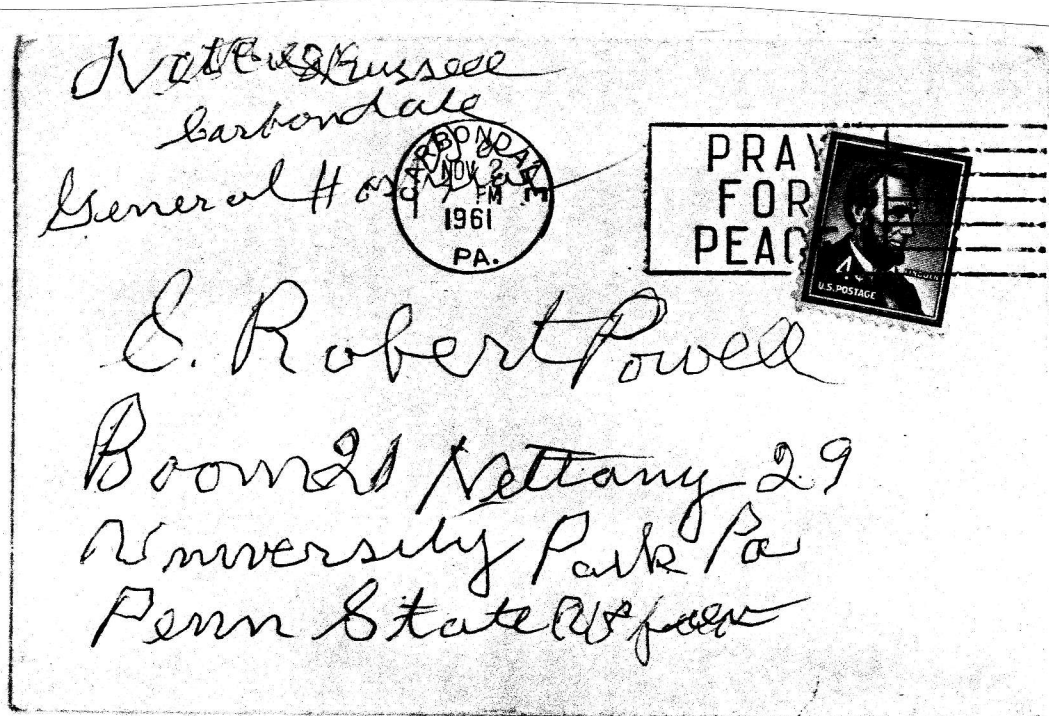 Russell
Carbondale
General Hospital
CARBONDALE
NOV 2
PM
1961
PA.
PRAY
FOR
PEACE
4¢
LINCOLN
U.S. POSTAGE
E. Robert Powell
Room 21 Nettany 29
University Park Pa
Penn State